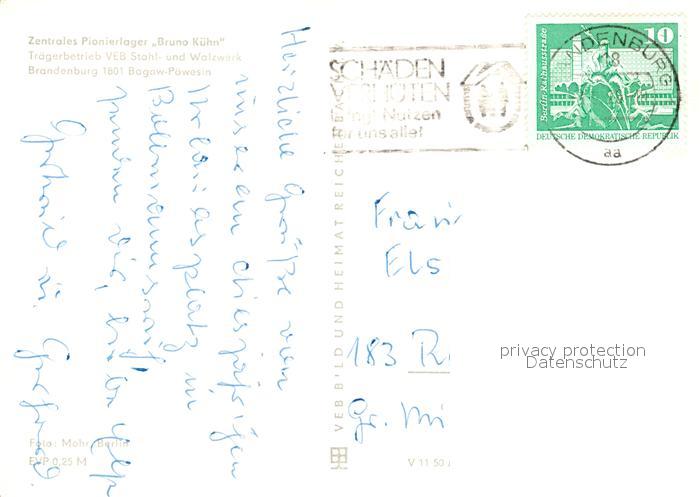 Zentrales Pionierlager „Bruno Kühn"
Trägerbetrieb VEB Stahl- und Walzwerk
Brandenburg 1801 Bagow-Päwesin
Herzliche Grüße von
unserem diesjährigen
Urlaubsplatz in
senden wir, liebe
Gertraud u. Gerhard.
Foto: Mohr, Berlin
EVP 0,25 M
VEB BILD UND HEIMAT REICHENBACH
V 11 50
SCHÄDEN
VERHÜTEN
bringt Nutzen
für uns alle!
BRANDENBURG
aa
10
Berlin-Rathausstraße
DEUTSCHE DEMOKRATISCHE REPUBLIK
Els
183 R
Gr. Mi
privacy protection
Datenschutz